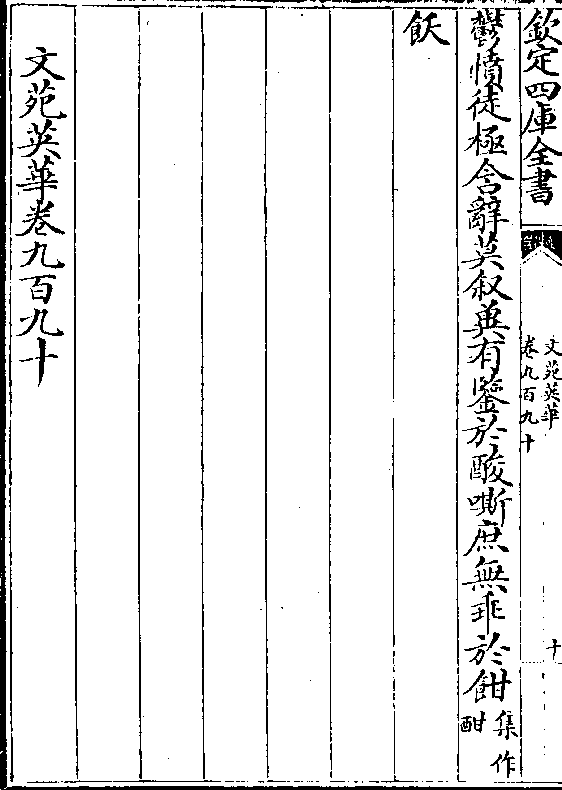 欽定四庫全書
文苑英華
卷九百九十
十
鬱憤徒極含辭莫叙兾有鑒於酸嘶庶無乖於䤴集作酣
飫
文苑英華卷九百九十